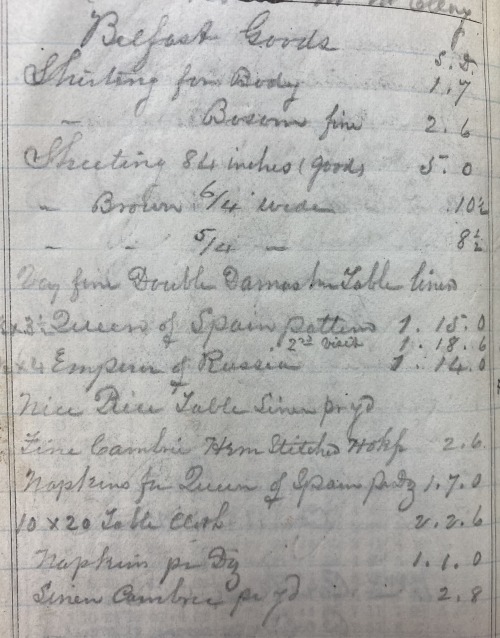 Belfast Goods
s. d.
Shirting for Body 1.7
" Bosom fine 2.6
Sheeting 84 inches (good) 5.0
" Brown 6/4 wide .10½
" " 5/4 " 8½
Very fine Double Damask Table linen
x3½ Queen of Spain pattern 1.15.0
2nd visit 1.18.6
x4 Emperor of Russia 1.14.0
Nice Table Linen pr yd
Fine Cambric Hem Stitched Hdkf 2.6
Napkins for Queen of Spain pr Dz 1.7.0
10 x 20 Table Cloth 2.2.6
Napkins pr Dz 1.1.0
Linen Cambric pr yd 2.8